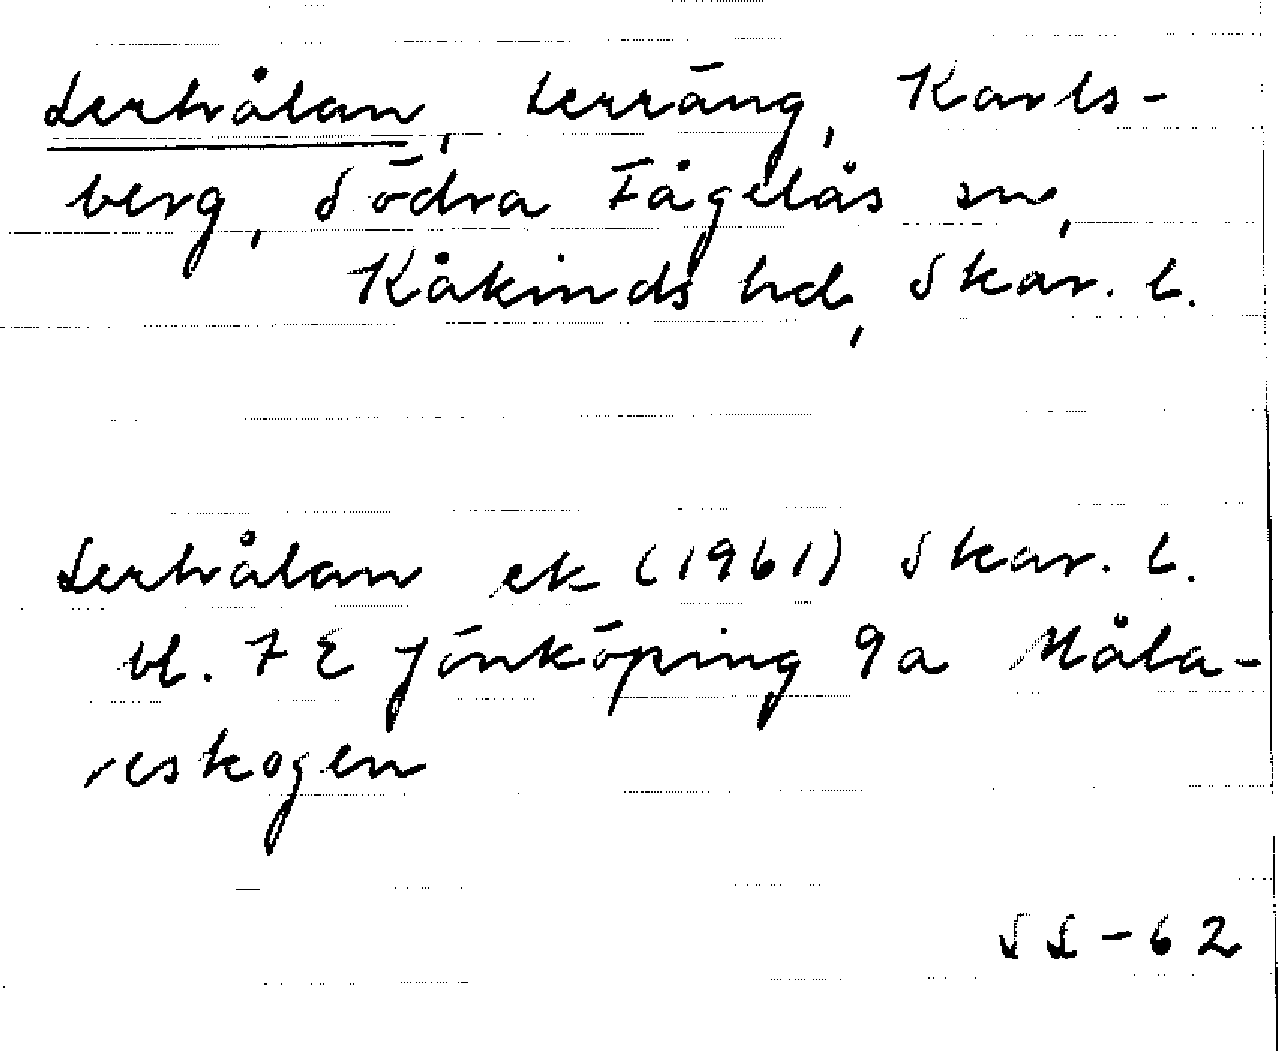 Lerhålan, terräng, Karls-
berg, Södra Fågelås sn,
Kåkinds hd, Skar. l.
Lerhålan ek (1961) Skar. l.
bl. 7 E Jönköping 9a Måla-
reskogen
SL-62